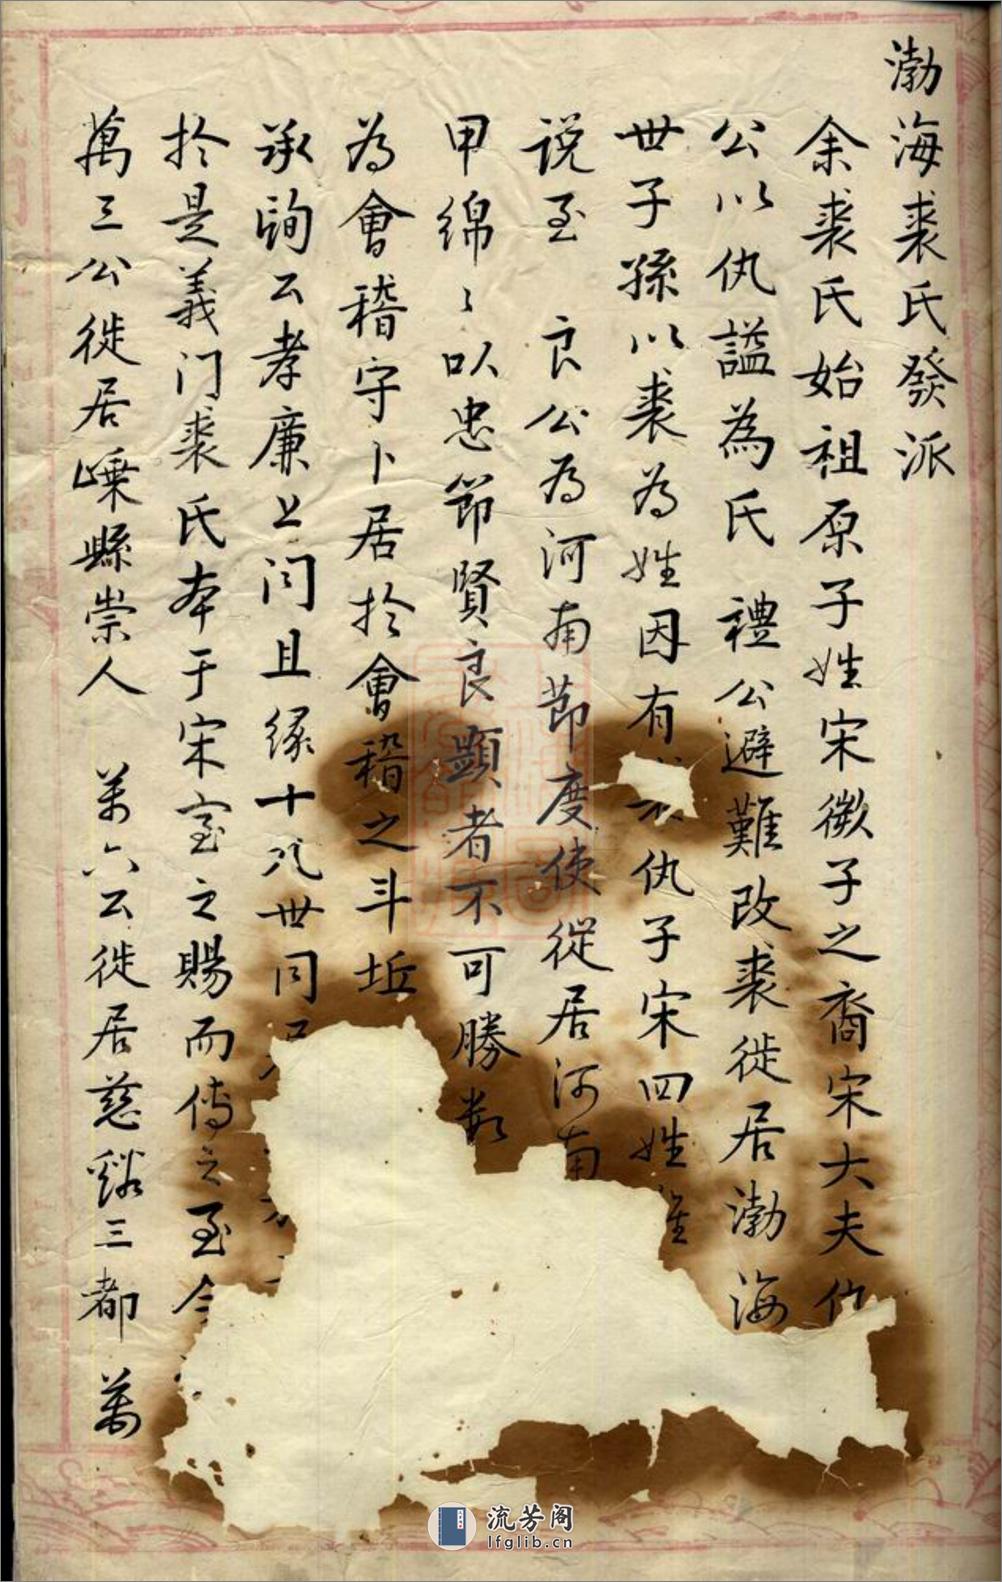 渤海裘氏發派
余裘氏始祖原子姓宋微子之裔宋大夫仇
公以仇謚為氏 禮公避難改裘徙居渤海
世子孫以裘為姓因有 仇子宋四姓
说至 良公為河南節度使從居河南
甲绵〻以忠節賢良顯者不可勝数
為會稽守卜居於會稽之斗坵
承詢公孝廉上问且緣十八世同居
於是義门裘氏本于宋室之賜而傳之至今
萬三公徙居嵊縣崇人 萬六公徙居慈谿三都 萬
流芳阁
lfglib.cn